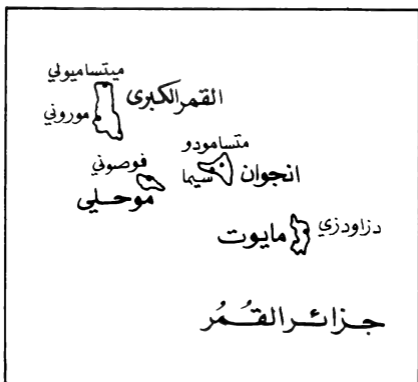 ميتساميولي
القمر الكبرى
موروني
متسامودو
فومبوني
سيما
انجوان
موحلي
دزاودزي
مايوت
جزائر القُمُر